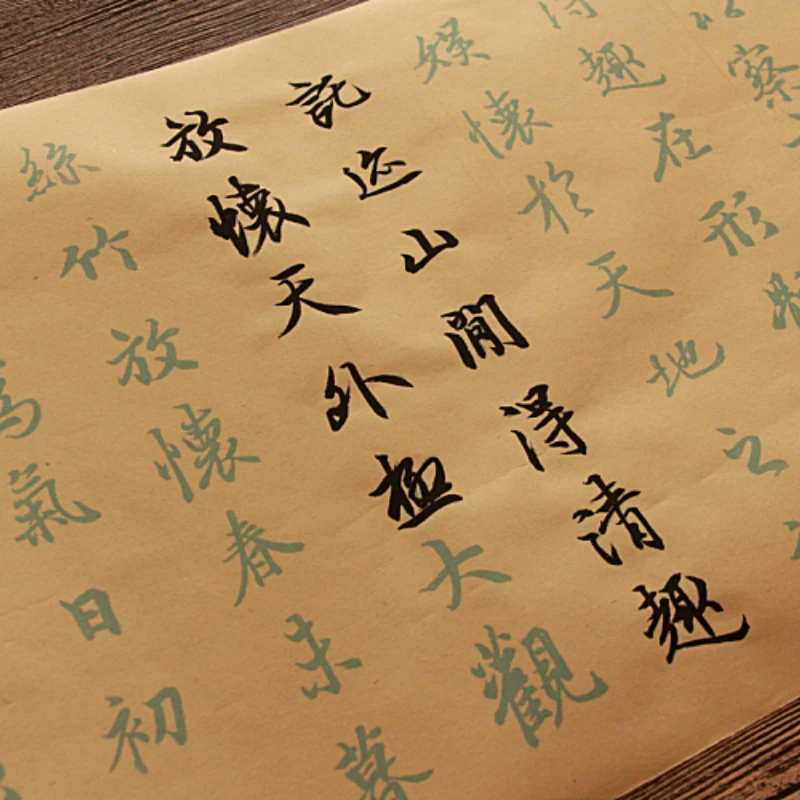 察
趣在形
娛懷於天地之
託迹山閒得清趣
放懷天外極大觀
絲竹放懷春未暮
氣日初